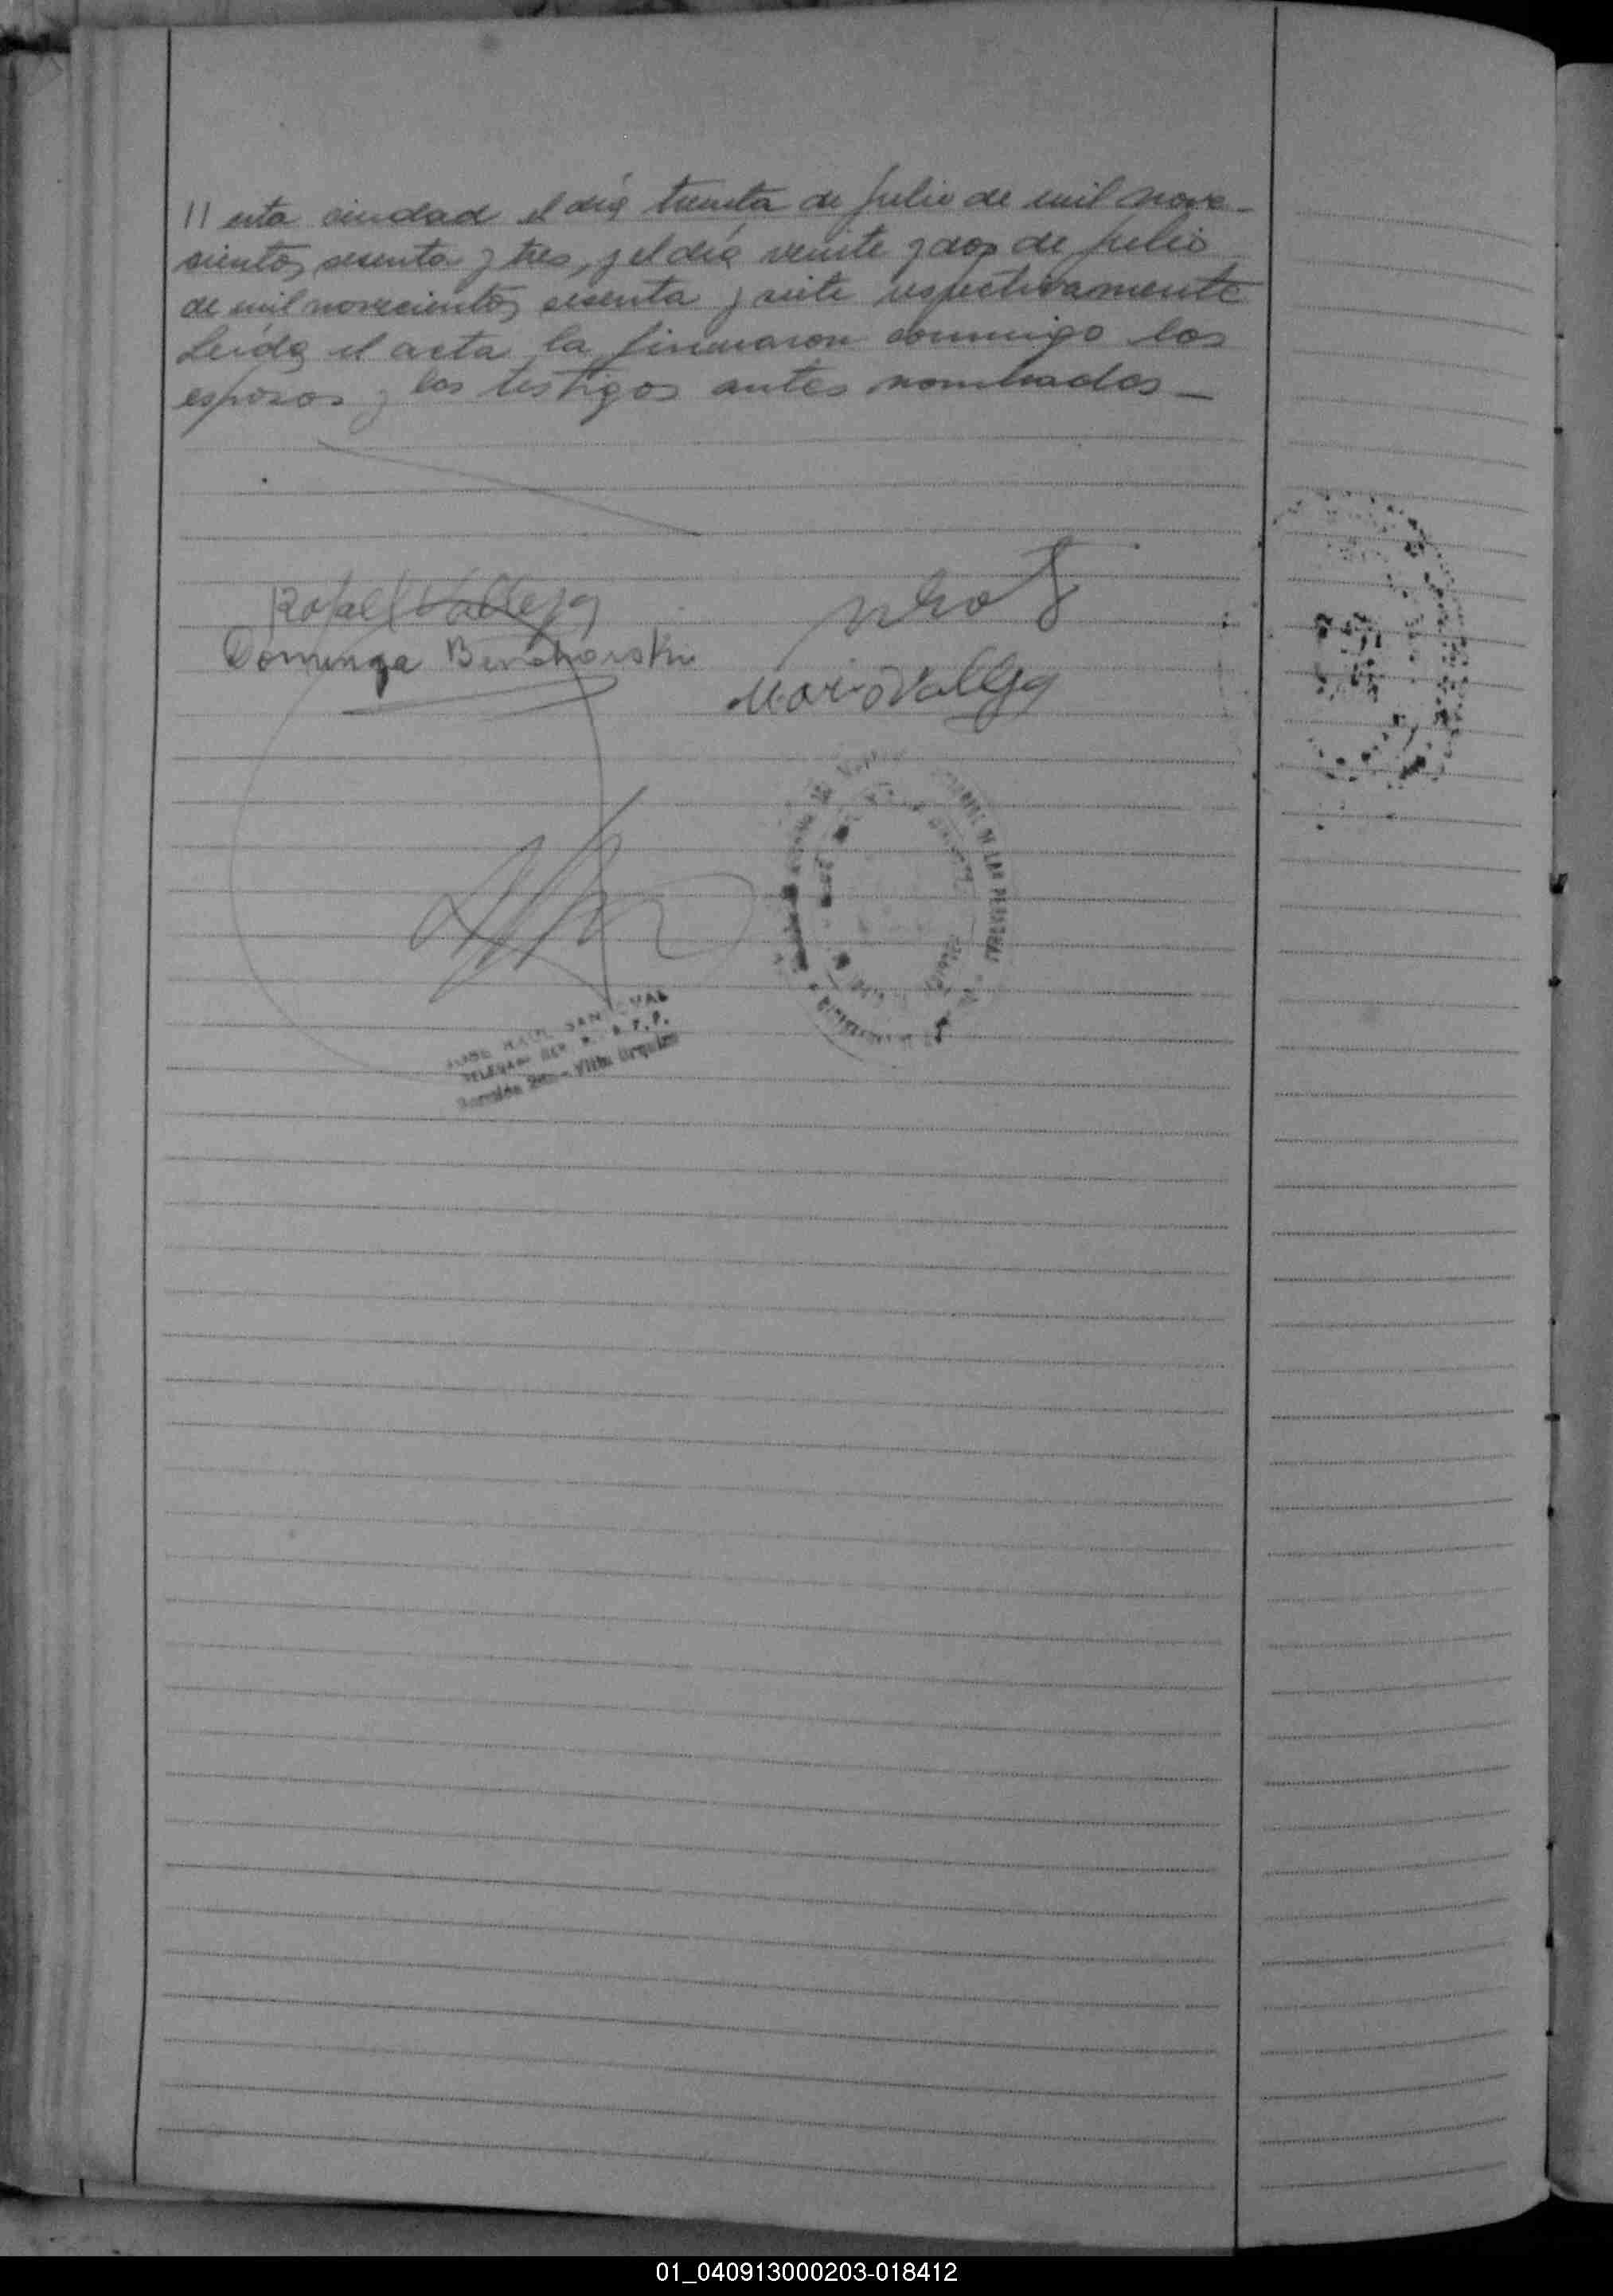 // esta ciudad el día treinta de julio de mil nove-
cientos sesenta y tres, y el día veinte y dos de julio
de mil novecientos sesenta y siete respectivamente
Leída el acta la firmaron conmigo los
esposos y los testigos antes nombrados —
Rafael Vallejo
Dominga
Mario Vallejo
JOSE RAUL SANDOVAL
DELEGADO
Sección 2a. - Villa Urquiza
DE LAS PERSONAS
01_040913000203-018412